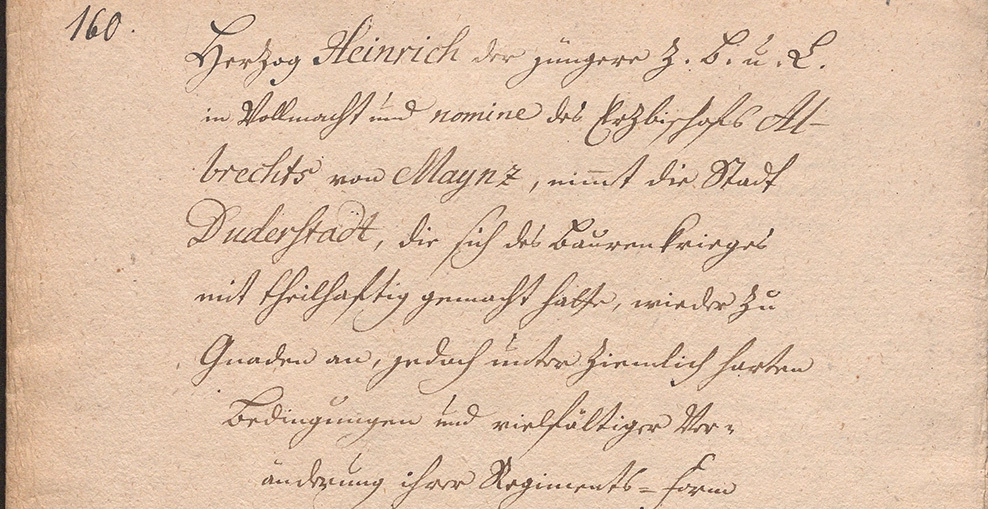 160.
Hertzog Heinrich der jüngere z. B. u. L.
in Vollmacht und nomine des Ertzbischofs Al-
brechts von Maynz, nim̅t die Stadt
Duderstadt, die sich des Baurenkrieges
mit theilhaftig gemacht hatte, wieder zu
Gnaden an, jedoch unter ziemlich harten
Bedingungen und vielfältiger Ver=
änderung ihrer Regiments=form